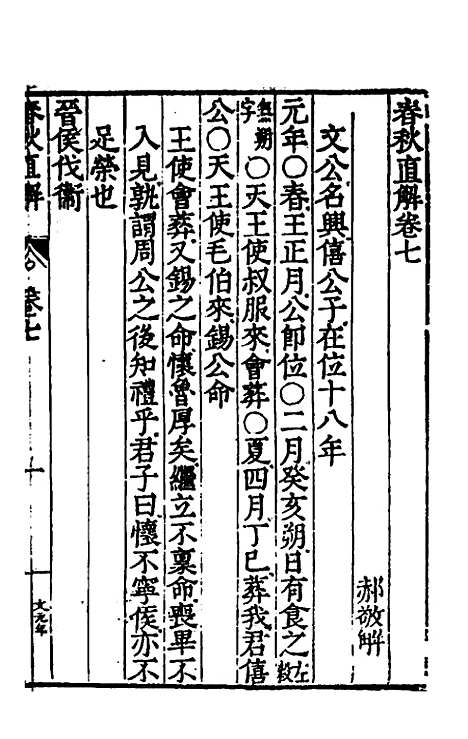 春秋直解卷七
郝敬解
文公名興僖公子在位十八年
元年〇春王正月公即位〇二月癸亥朔日有食之左穀
無朔字〇天王使叔服來會葬〇夏四月丁巳葬我君僖
公〇天王使毛伯來錫公命
王使會葬又錫之命懷魯厚矣繼立不稟命喪畢不
入見孰謂周公之後知禮乎君子曰懷不寧侯亦不
足榮也
晉侯伐衞
春秋直解 卷七 一 文元年